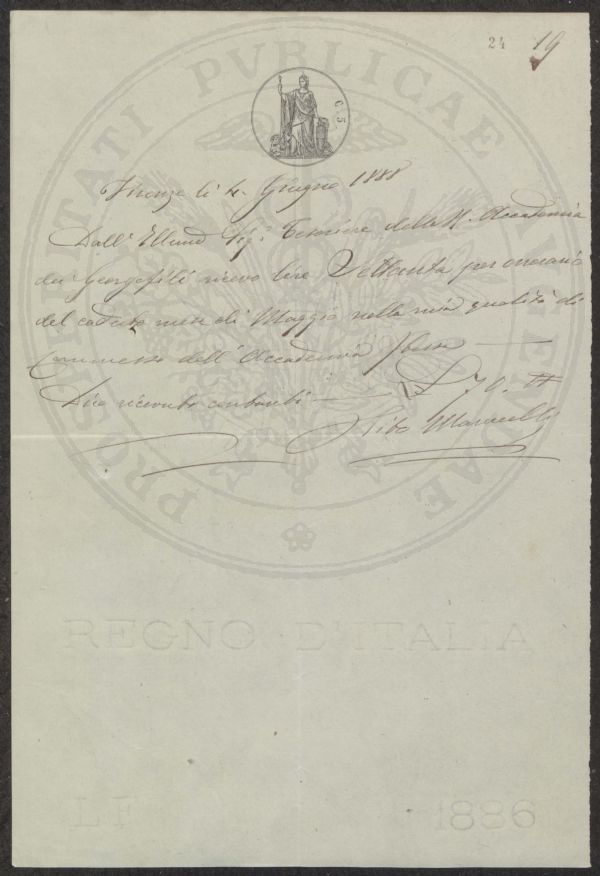 24 19
PROSPERITATI PVBLICAE AVGENDAE
C. 5.
Firenze li 4. Giugno 1888
Dall' Illmo Sigr. Cassiere della R. Accademia
dei Georgofili ricevo lire Settanta per onorario
del caduto mese di Maggio nella mia qualità di
Commesso dell' Accademia
Dico ricevute contanti — L 70. "
Tito
REGNO D'ITALIA
LF 1886